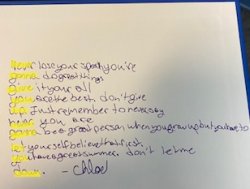 Never lose your spark you're
gonna do great things
give it your all
you are the best. don't give
up. Just remember to never say
you are
gonna be a great person when you grow up but you have to
let yourself believe that first.
you have a great summer. don't let me
- Chloe